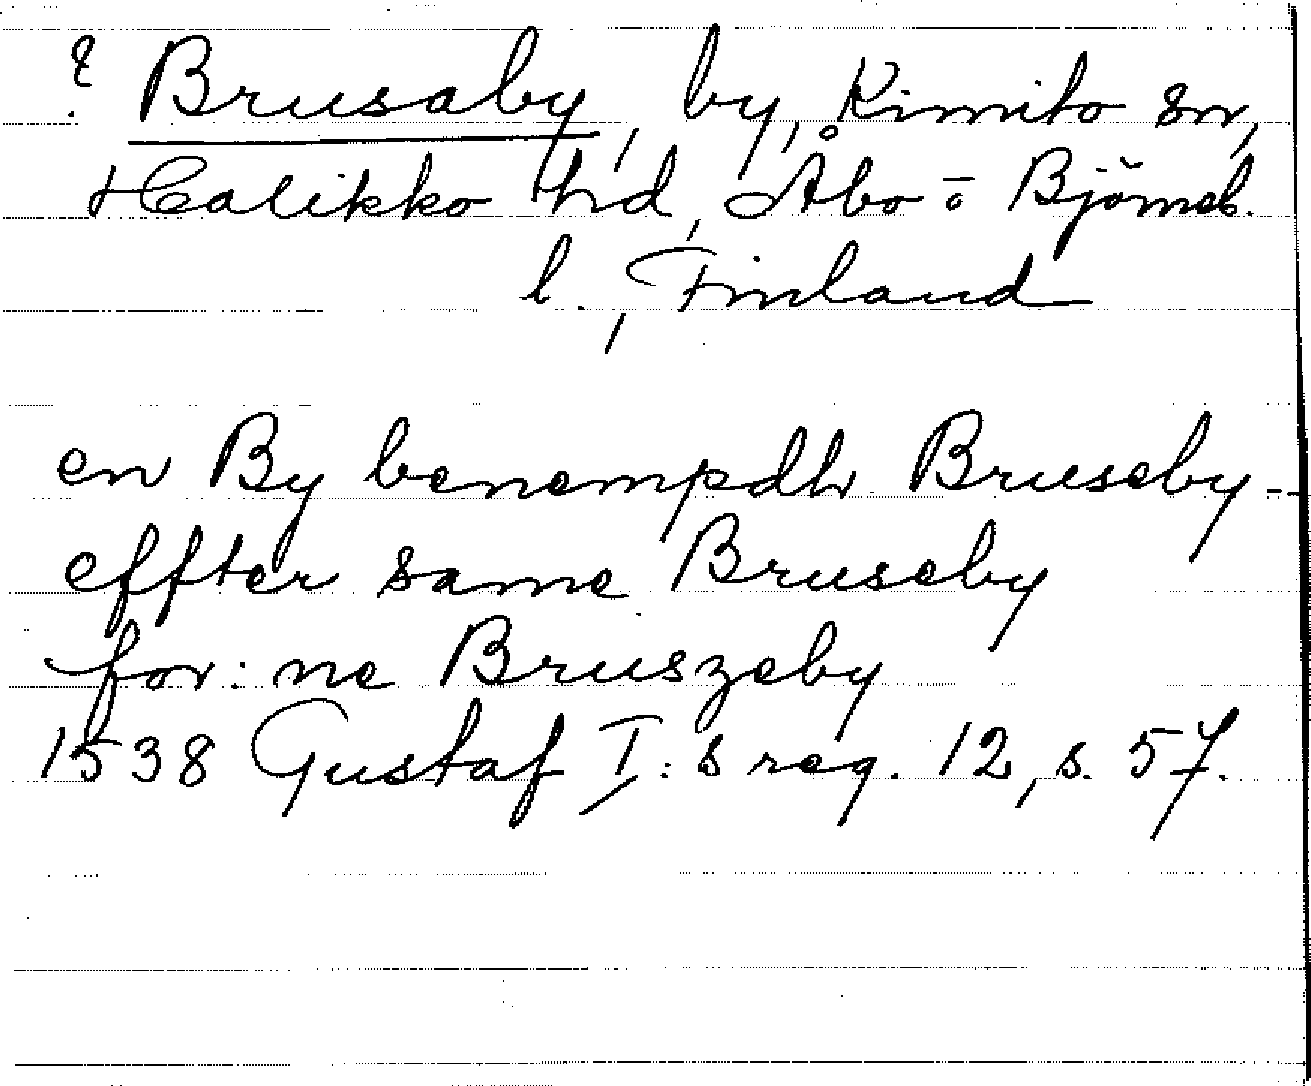 ? Brusaby, by, Kimito sn,
Halikko hd, Åbo o Björneb.
l., Finland
en By benempdh Bruseby --
effter same Bruseby
for: ne Bruszeby
1538 Gustaf I: s reg. 12, s. 57.